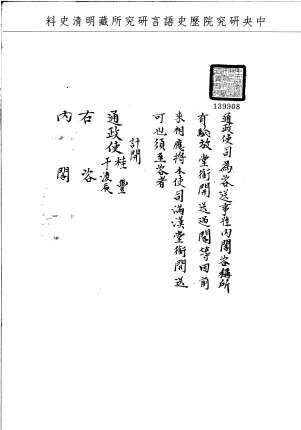 中央研究院歷史語言研究所藏明清史料
139908
通政使司為咨送事准內閣咨稱所
有驗放堂銜開送過閣等因前
來相應將本使司滿漢堂銜開送
可也須至咨者
計開
通政使桂豐
于凌辰
右咨
內閣